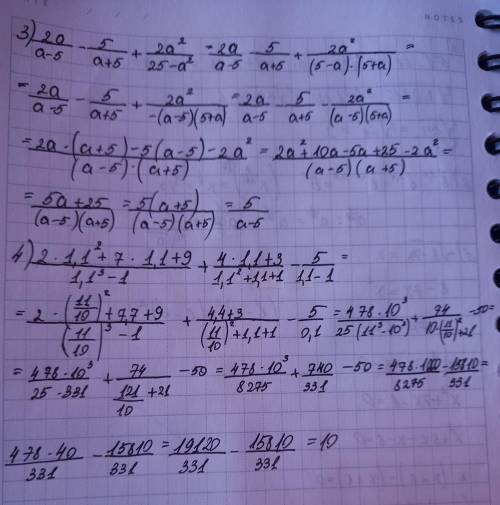 3) 2a/(a-5) - 5/(a+5) + 2a²/(25-a²) = 2a/(a-5) - 5/(a+5) + 2a²/((5-a)·(5+a)) =
= 2a/(a-5) - 5/(a+5) + 2a²/(-(a-5)(5+a)) = 2a/(a-5) - 5/(a+5) - 2a²/((a-5)(5+a)) =
= (2a·(a+5)-5(a-5)-2a²)/((a-5)·(a+5)) = (2a²+10a-5a+25-2a²)/((a-5)(a+5)) =
= (5a+25)/((a-5)(a+5)) = 5(a+5)/((a-5)(a+5)) = 5/(a-5)
4) (2·1,1²+7·1,1+9)/(1,1³-1) + (4·1,1+3)/(1,1²+1,1+1) - 5/(1,1-1) =
= (2·(11/10)²+7,7+9)/((11/10)³-1) + (4,4+3)/((11/10)²+1,1+1) - 5/0,1 = 478·10³/(25(11³-10³)) + 74/(10·(11/10)²+21) - 50 =
= 478·10³/(25·331) + 74/(121/10+21) - 50 = 478·10³/8275 + 740/331 - 50 = 478·1000/8275 - 15810/331 =
478·40/331 - 15810/331 = 19120/331 - 15810/331 = 10